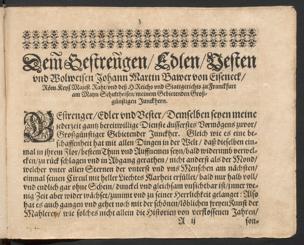 Dem Gestrengen/ Edlen/ Vesten
und Wolweisen Johann Martin Bawer von Eiseneck/
Röm. Keys. Maiest. Raht/ und deß H. Reichs und Stattgerichts zu Franckfurt
am Mayn Schultheisen/ meinem Gebietenden Groß-
günstigen Junckhern.
GEstrenger/ Edler und Vester/ Demselben seyen meine
jederzeit gantz bereitwillige Dienste äusserstes Vermögens zuvor/
Großgünstiger Gebietender Junckher. Gleich wie es eine be-
schaffenheit hat mit allen Dingen in der Welt/ daß dieselben ein-
mal in ihrem Flor/ bestem Thun und Auffnemen seyn/ bald widerumb verwel-
cken/ zu rück schlagen und in Abgang gerathen/ nicht anderst als der Mond/
welcher unter allen Sternen der unterst und uns Menschen am nächsten/
einmal seinen Circul mit heller Liechtes Klarheit erfüllet/ bald nur halb voll/
und endlich gar ohne Schein/ dunckel und gleichsam unsichtbar ist/ immer we-
nig Zeit aber wider wächst/ zunimt und zu seiner Herrlichkeit gelanget: Also
hat es auch gangen und gehet noch mit der schönen/ löblichen freyen Kunst der
Mahlerey/ wie solches nicht allein die Historien von verflossenen Jahren/
A ij son-